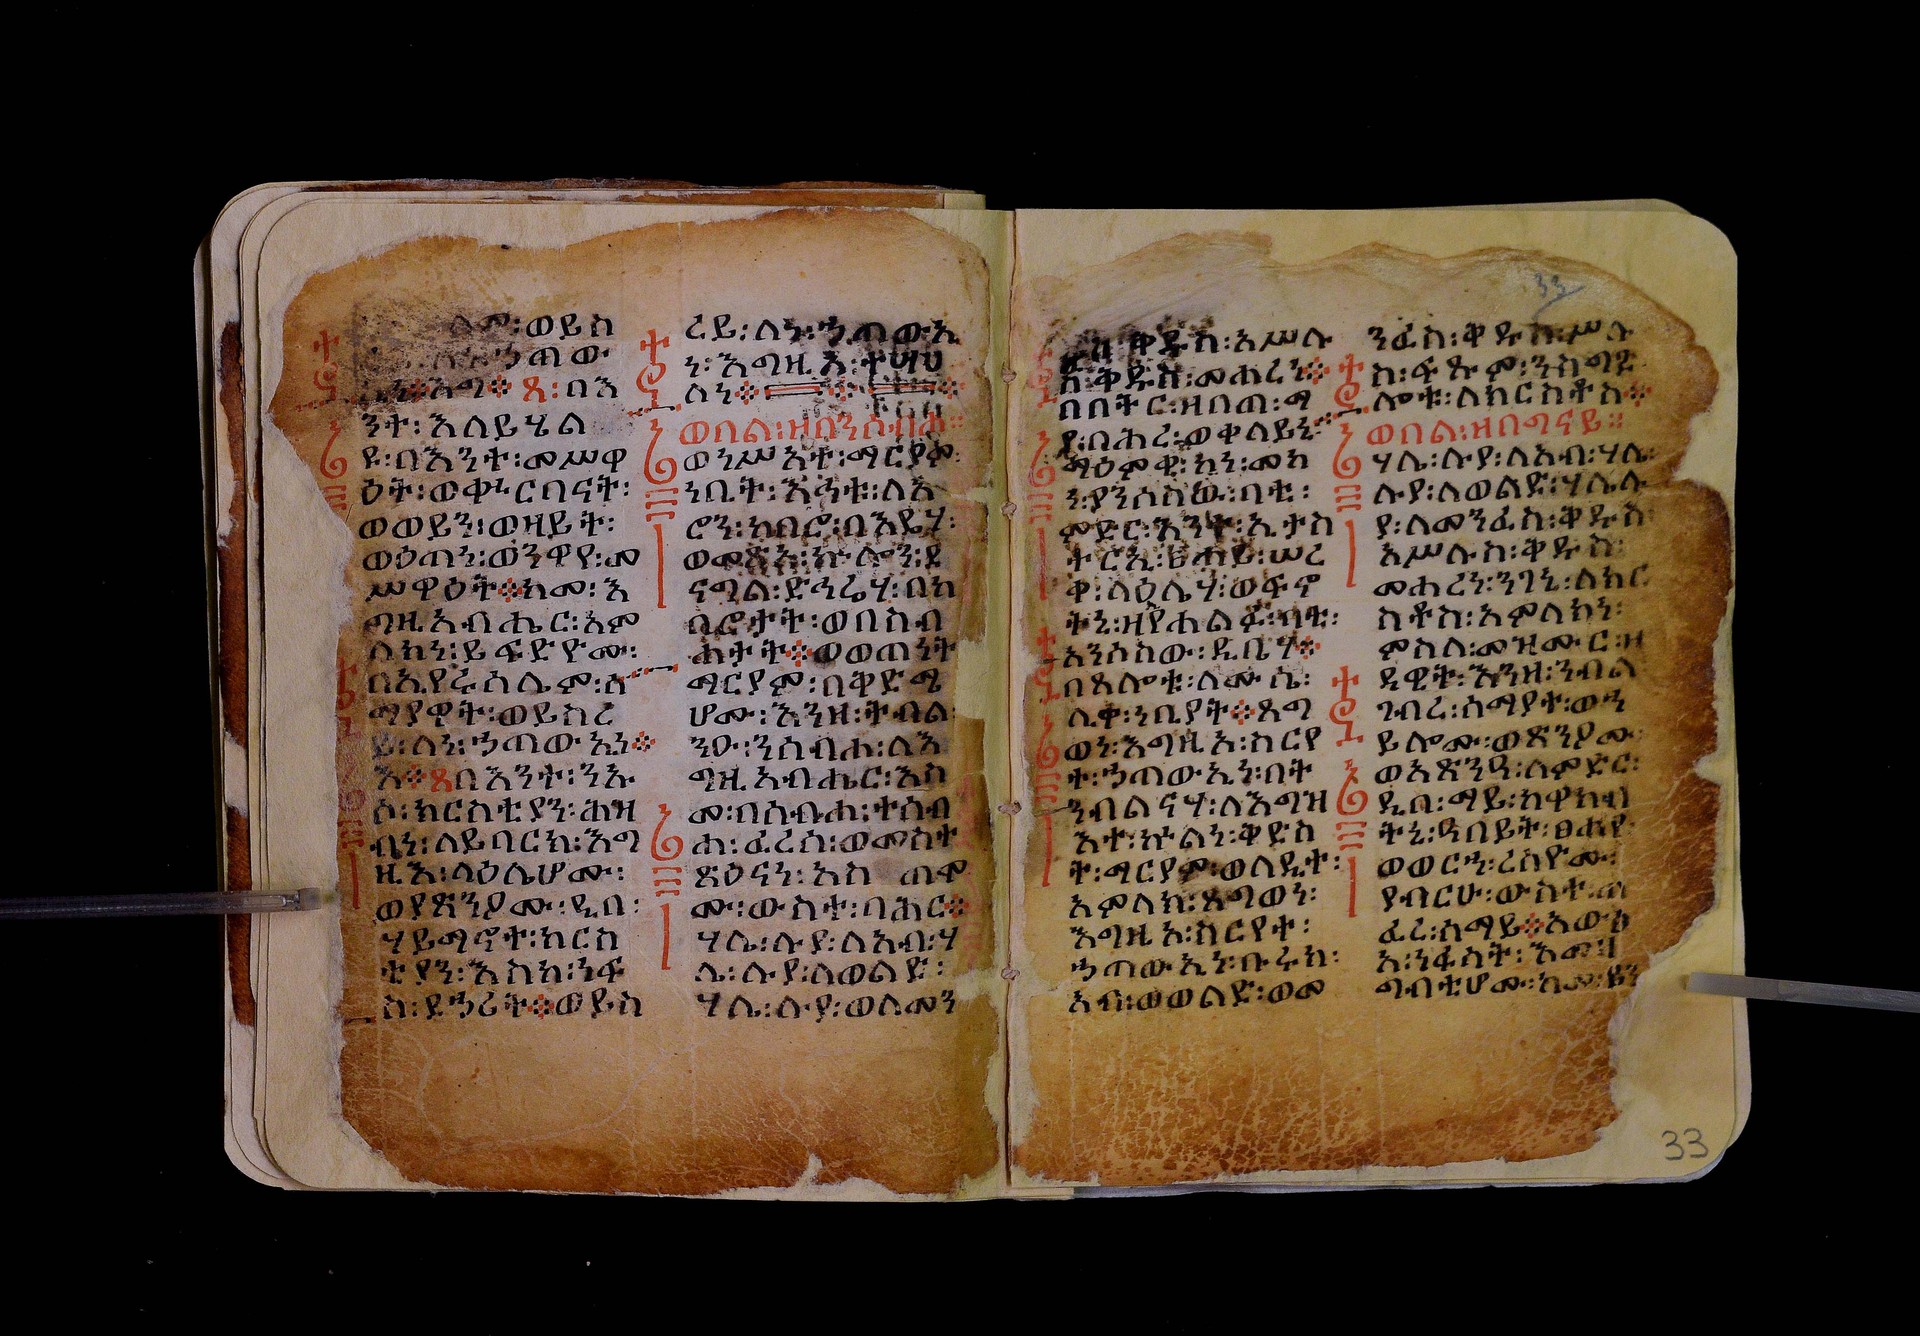 ወይስ
ኃጣው
ጸ፡ በእ
ንተ፡ እለይሄል
ዩ፡ በእንተ፡ መሥዋ
ዕት፡ ወቍርባናት፡
ወወይን፡ ወዘይት፡
ወዕጣን፡ ወንዋየ፡ መ
ሥዋዕት፨ ከመ፡ እ
ግዚአብሔር፡ አም
ላክነ፡ ይፍድዮሙ፡
በኢየሩሳሌም፡ ሰ
ማያዊት፡ ወይስረ
ይ፡ ለነ፡ ኃጣውኢነ፨
እ፨ ጸ በእንተ፡ ንኡ
ሰ፡ ክርስቲያን፡ ሕዝ
ብነ፡ ለይባርክ፡ እግ
ዚእ፡ ላዕሌሆሙ፡
ወያጽንዖሙ፡ ዲበ፡
ሃይማኖተ፡ ክርስ
ቲያን፡ እስከ፡ ንፍ
ስ፡ ደኃሪት፨ ወይስ
ረይ፡ ለነ፡ ኃጣውኢ
ነ፡ እግዚእ፡ ተሣሀ
ለነ፨
ወበል፡ ዘበንሴብሖ።
ወነሥአት፡ ማርያም፡
ነቢት፡ እኅቱ፡ ለአ
ሮን፡ ከበሮ፡ በእዴሃ፡
ወመጽአ፡ ኵሎን፡ ደ
ናግል፡ ድኅሬሃ፡ በከ
በሮታት፡ ወበስብ
ሐታት፨ ወወጠነት
ማርያም፡ በቅድሜ
ሆሙ፡ እንዘ፡ ትብል
ንዑ፡ ንሰብሖ፡ ለእ
ግዚአብሔር፡ እስ
መ፡ በስብሐ፡ ተሰብ
ሐ፡ ፈረሰ፡ ወመስተ
ጽዕናነ፡ አስ ጠሞ
ሙ፡ ውስተ፡ ባሕር፨
ሃሌ፡ ሉያ፡ ለአብ፡ ሃ
ሌ፡ ሉያ፡ ለወልድ፡
ሃሌ፡ ሉያ፡ ወለመን
ቅዱስ፡ እሥሉ
ስ፡ ቅዱስ፡ መሐረነ፨
በበትር፡ ዘበጠ፡ ማ
የ፡ በሕረ፡ ወቀላይነ፡
ማዕምቂ፡ ከነ፡ መከ
ነ፡ ያንሶስዉ፡ ባቲ፡
ምድር፡ እንተ፡ ኢታስ
ተርኢ፡ ፀሐይ፡ ሠረ
ቀ፡ ላዕሌሃ፡ ወፍኖ
ትነ፡ ዘየሐልፉ፡ ባቲ፡
አንሶሰው፡ ዲቤሃ፨
በጸሎቱ፡ ለሙሴ፡
ሊቀ፡ ነቢያት፨ ጸግ
ወነ፡ እግዚአ፡ ስርየ
ተ፡ ኃጣውኢነ፡ በት
ንብልናሃ፡ ለእግዝ
እተ፡ ኵልነ፡ ቅድስ
ት፡ ማርያም፡ ወላዲተ፡
አምላክ፡ ጸግወነ፡
እግዚአ፡ ስርየተ፡
ኃጣውኢነ፡ ቡሩክ፡
አብ፡ ወወልድ፡ ወመ
ንፈስ፡ ቅዱስ፡ ሥሉ
ስ፡ ፍጹም፡ ንስግድ
ሎቱ፡ ለክርስቶስ፨
ወበል፡ ዘበግናይ።
ሃሌ፡ ሉያ፡ ለአብ፡ ሃሌ፡
ሉያ፡ ለወልድ፡ ሃሌሉ
ያ፡ ለመንፈስ፡ ቅዱስ
እሥሉስ፡ ቅዱስ፡
መሐረነ፡ ንገኒ፡ ለክር
ስቶስ፡ አምላክነ፡
ምስለ፡ መዝሙር፡ ዘ
ዳዊት፡ እንዘ፡ ንብል
ገብረ፡ ሰማያተ፡ ወኀ
ይሎሙ፡ ወጽንዖሙ
ወአጽንዓ፡ ለምድር፡
ዲበ፡ ማይ፡ ከዋክብ
ትኒ፡ ዓበይት፡ ፀሐየ
ወወርኀ፡ ረሰዮሙ፡
ያብርሁ፡ ውስተ፡ ጠ
ፈረ፡ ሰማይ፨ አውፅ
አ፡ ነፋሳት፡ እመዛ
ግብቲሆሙ፡ ከመ፡
33
33